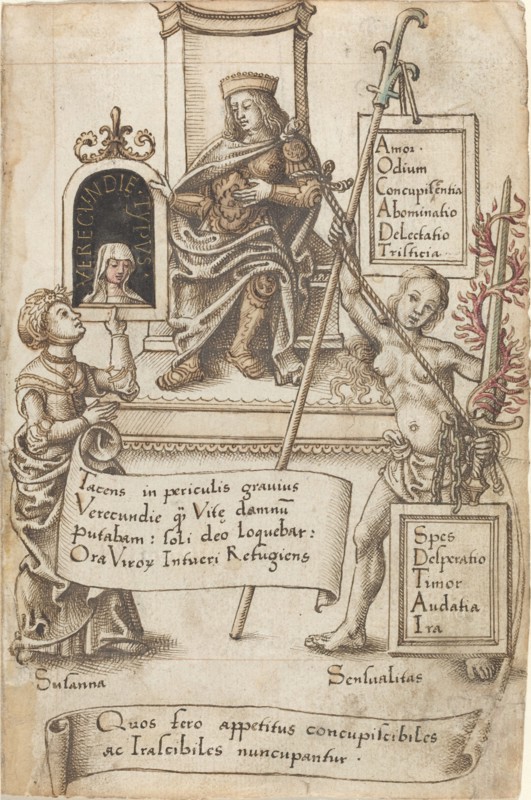 VERECUNDIE TYPVS
Amor.
Odium
Concupiscentia
Abominatio
Delectatio
Tristicia
Iacens in periculis grauius
Verecundie qȝ Vitę damnū
Putabam: soli deo loquebar:
Ora Viroꝝ Intueri Refugiens
Spes
Desperatio
Timor
Audatia
Ira
Susanna
Sensualitas
Quos fero appetitus concupiscibiles
ac Irascibiles nuncupantur.